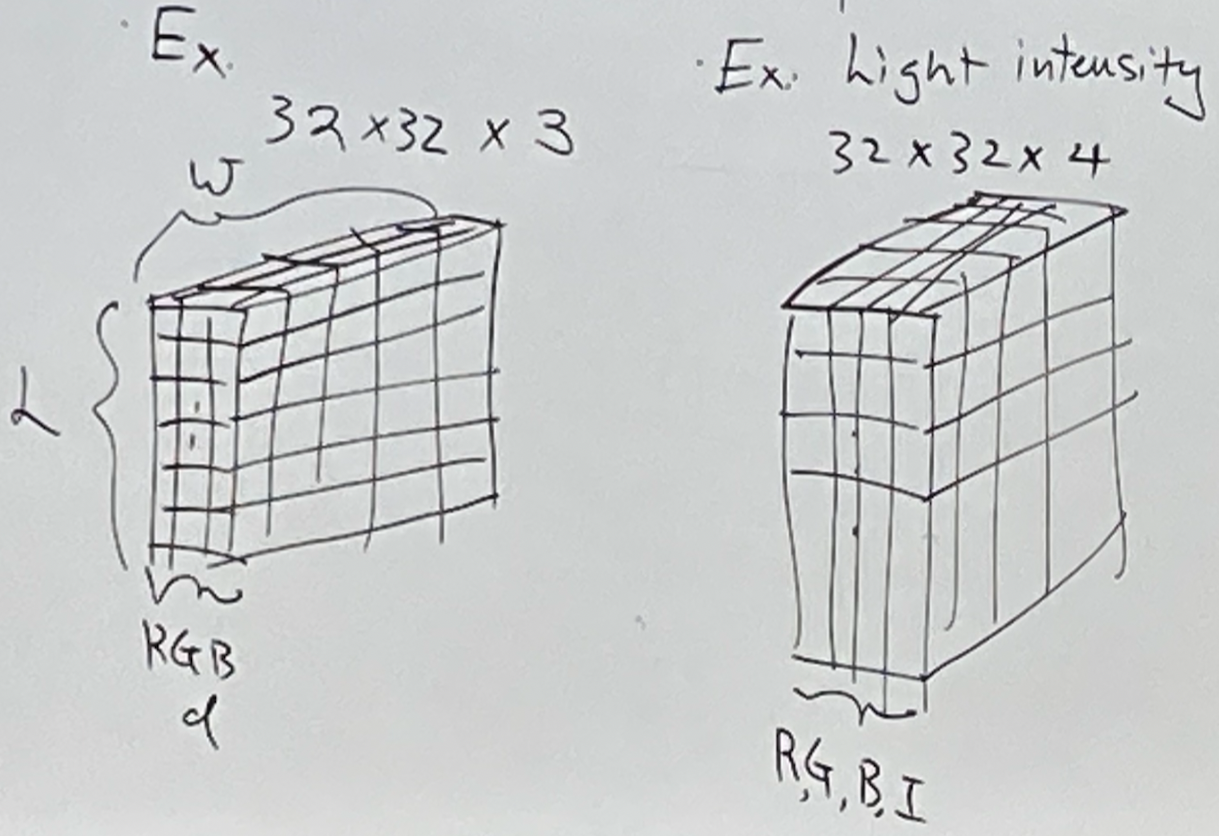 · Ex.
32 × 32 × 3
W
L
RGB
d
· Ex. Light intensity
32 × 32 × 4
R,G,B,I